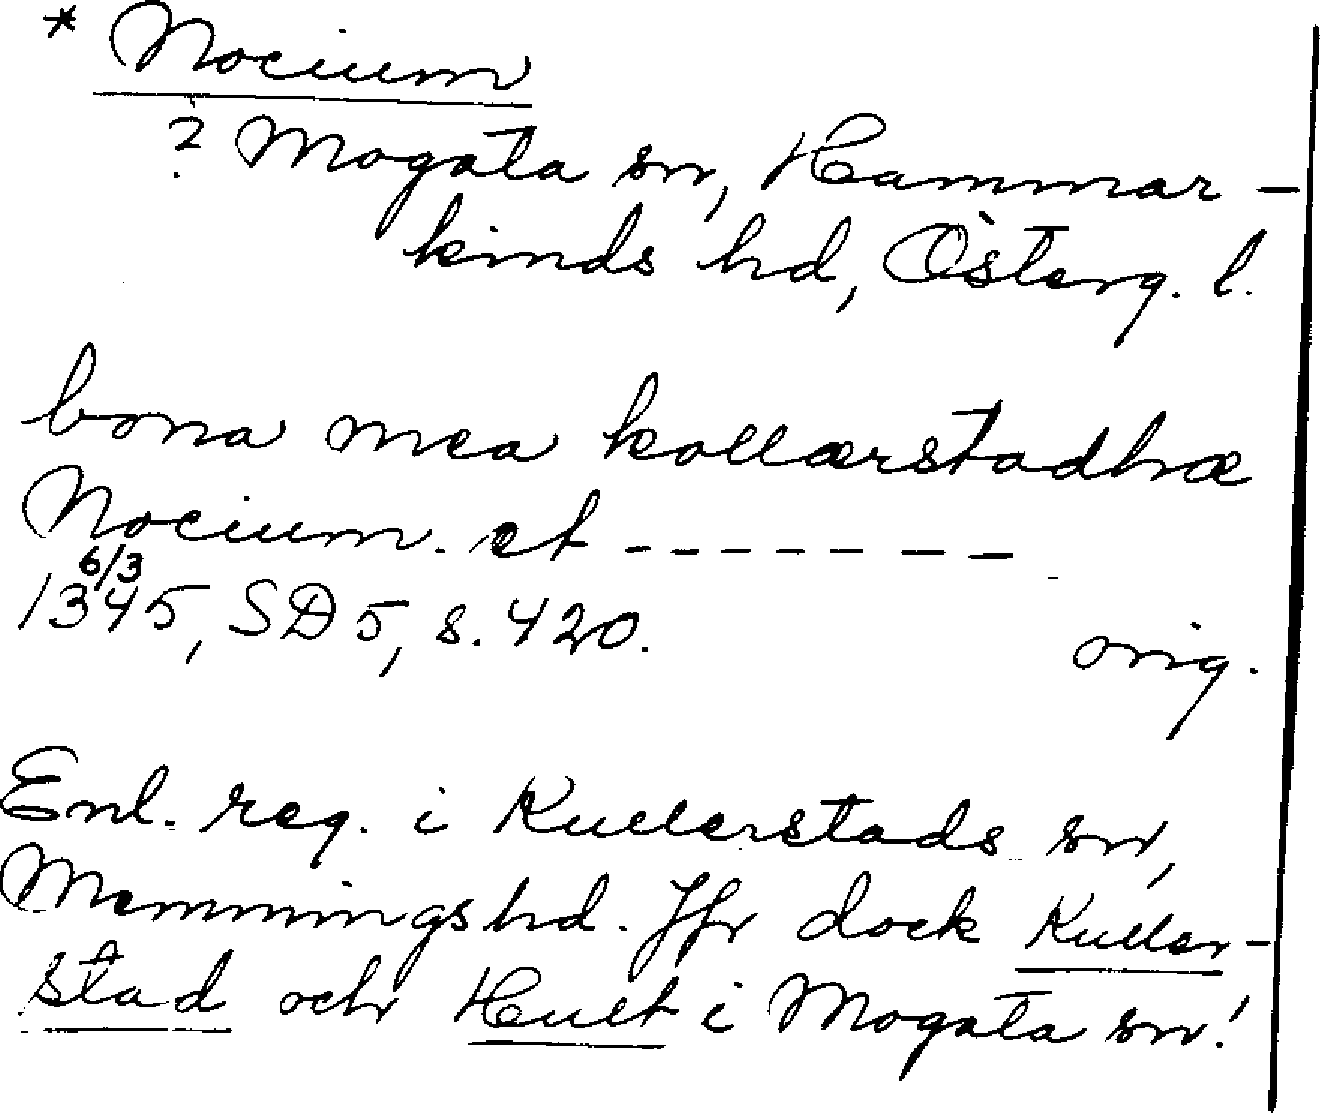 * Nocium
? Mogata sn, Hammar-
kinds hd, Österg. l.
bona mea kollærstadhæ
Nocium. et - - - - - - -
6/3
1345, SD 5, s. 420. orig.
Enl. reg. i Kullerstads sn,
Memmings hd. Jfr dock Kuller-
stad och Hult i Mogata sn!